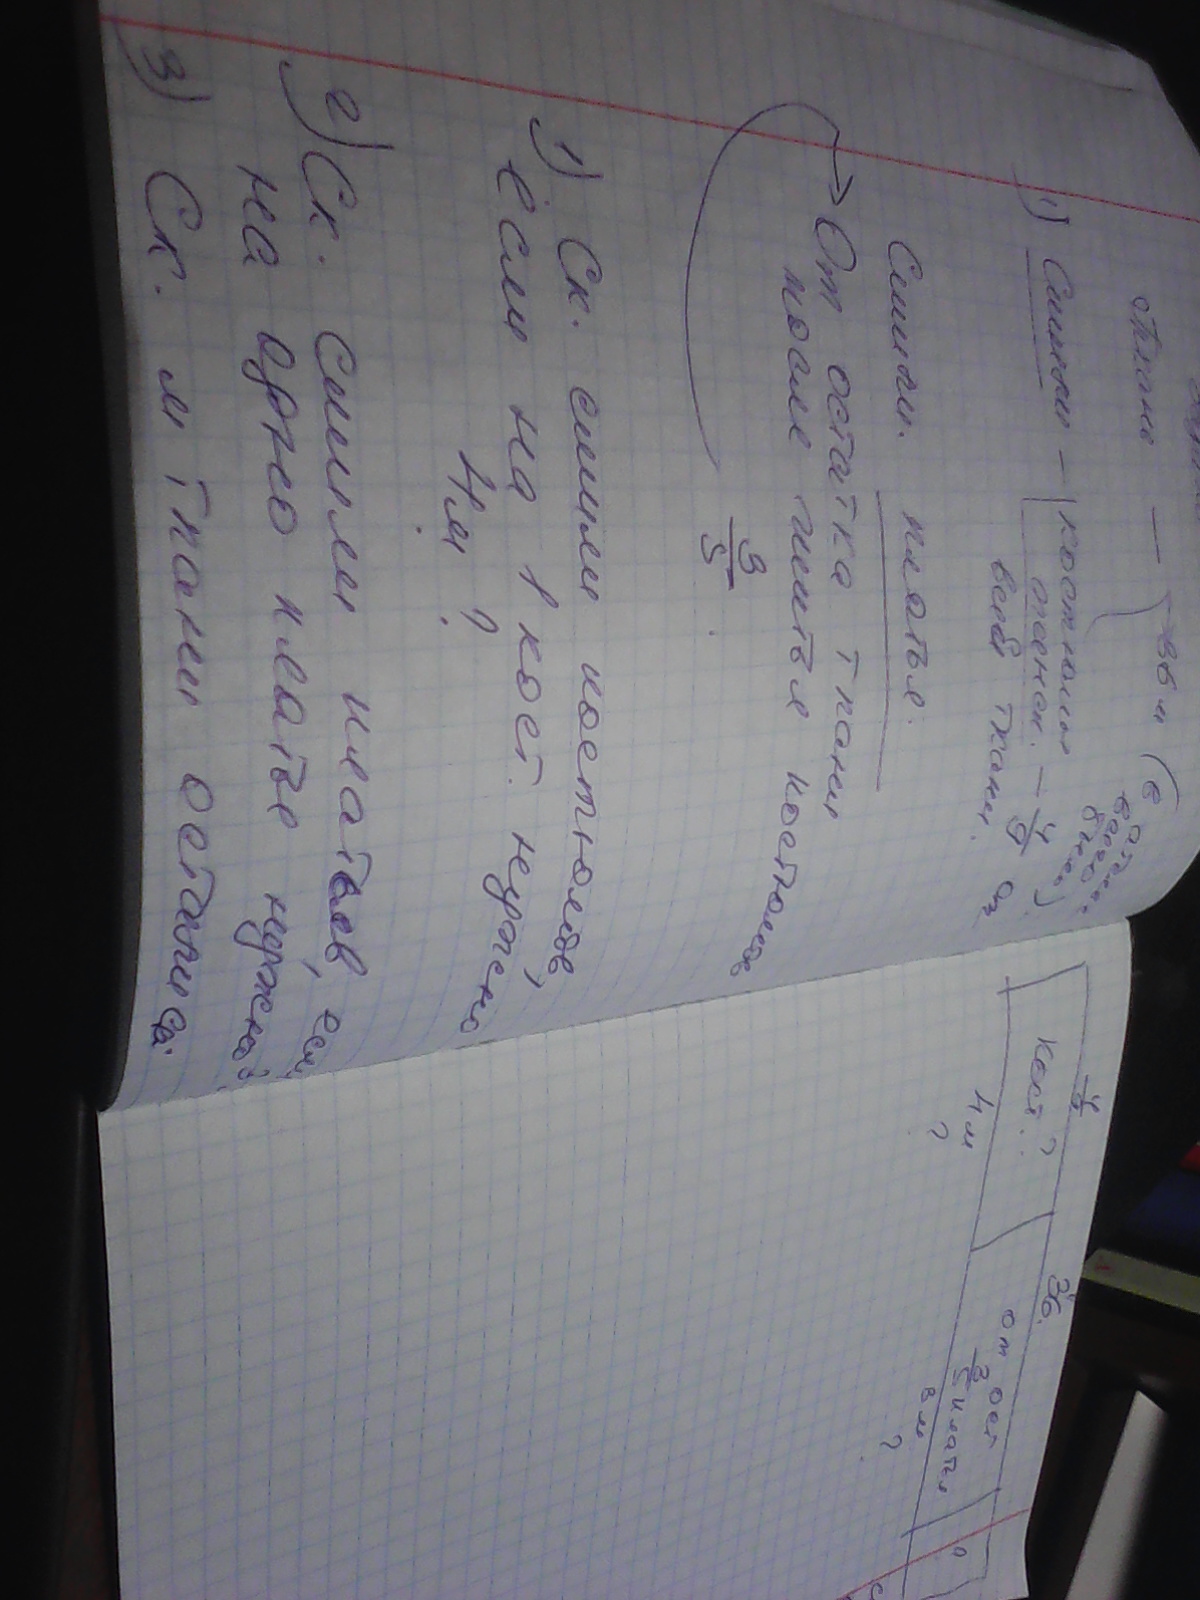 ткань — 36 м (в ателье
всего
было)
1) Сшили — костюмы
женск. — 4/9 от
всей ткани.
Сшили. платья.
От остатка ткани
после шитья костюмов
3/5
1) Ск. сшили костюмов,
если на 1 кост. нужно
4м ?
2) Ск. сшили платьев, если
на одно платье нужно 3
3) Ск. м ткани осталось.
4/9
36.
Кост. ?
4 м
?
от ост
3/5 платья
3 м
?